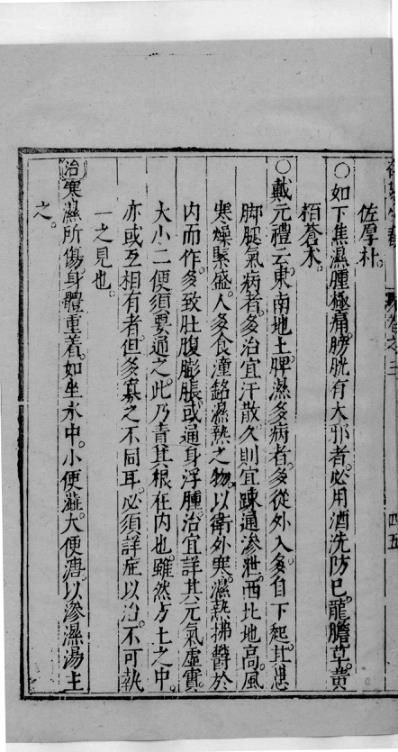 四五
佐厚朴
○如下焦濕腫極痛膀胱有大邪者必用酒洗防已龍膽草黄
栢蒼术
○戴元禮云東南地土脾濕多病者多從外入多自下起其患
脚腿氣病者多治宜汗散久則宜踈通滲泄西北地高風
寒燥緊盛人多食潼酪濕熱之物以衛外寒濕熱拂鬱於
内而作多致肚腹膨脹或通身浮腫治宜詳其元氣虛實
大小二便須要通之此乃責其根在内也雖然方土之中
亦或互相有者但多寡之不同耳必須詳症以治不可執
一之見也
治寒濕所傷身體重着如坐水中小便澁大便溏以滲濕湯主
之